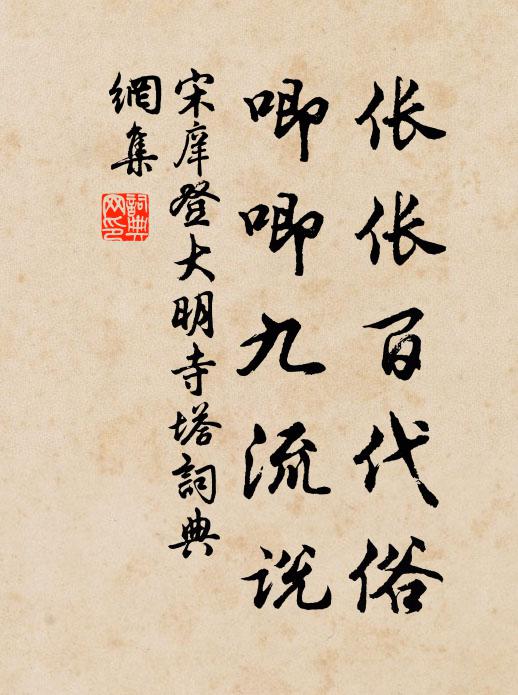 伥伥百代俗
唧唧九流说
宋庠登大明寺塔詞典
網集
詞典
网印